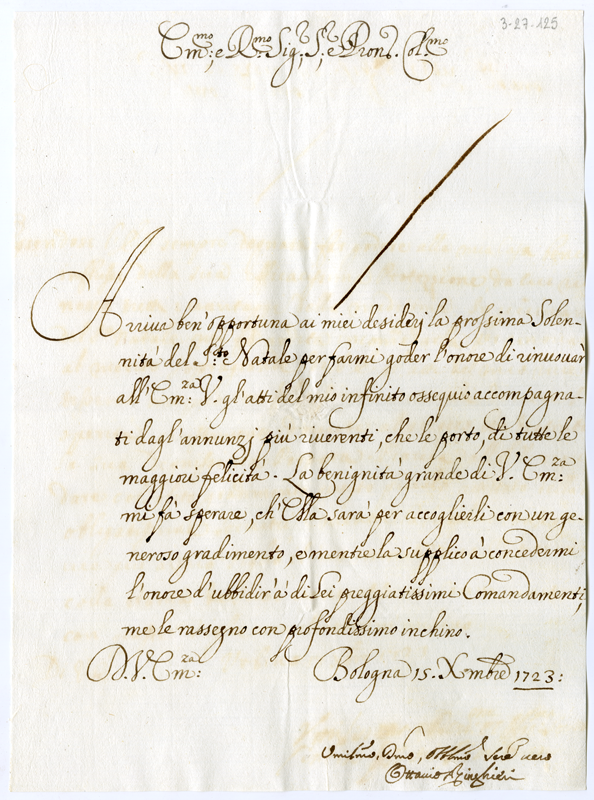 3-27-125
Em:mo e R.mo Sig.r, S.r e Pron. Col.mo
Arriva ben'opportuna ai miei desiderj la prossima Solen-
nità del S.to Natale per farmi goder l'onore di rinuovar
all'Em:za V. gl'atti del mio infinito ossequio accompagna-
ti dagl'annunzj più riverenti, che le porto, di tutte le
maggiori felicità. La benignità grande di V. Em:za
mi fà sperare, ch'Ella sarà per accoglierli con un ge-
neroso gradimento, e mentre la supplico à concedermi
l'onore d'ubbidir'à di Lei preggiatissimi Comandamenti,
me le rassegno con profondissimo inchino.
D. V. Em:za
Bologna 15. Xmbre 1723:
Umilmo, Dmo, Obblmo Serv vero
Ottavio